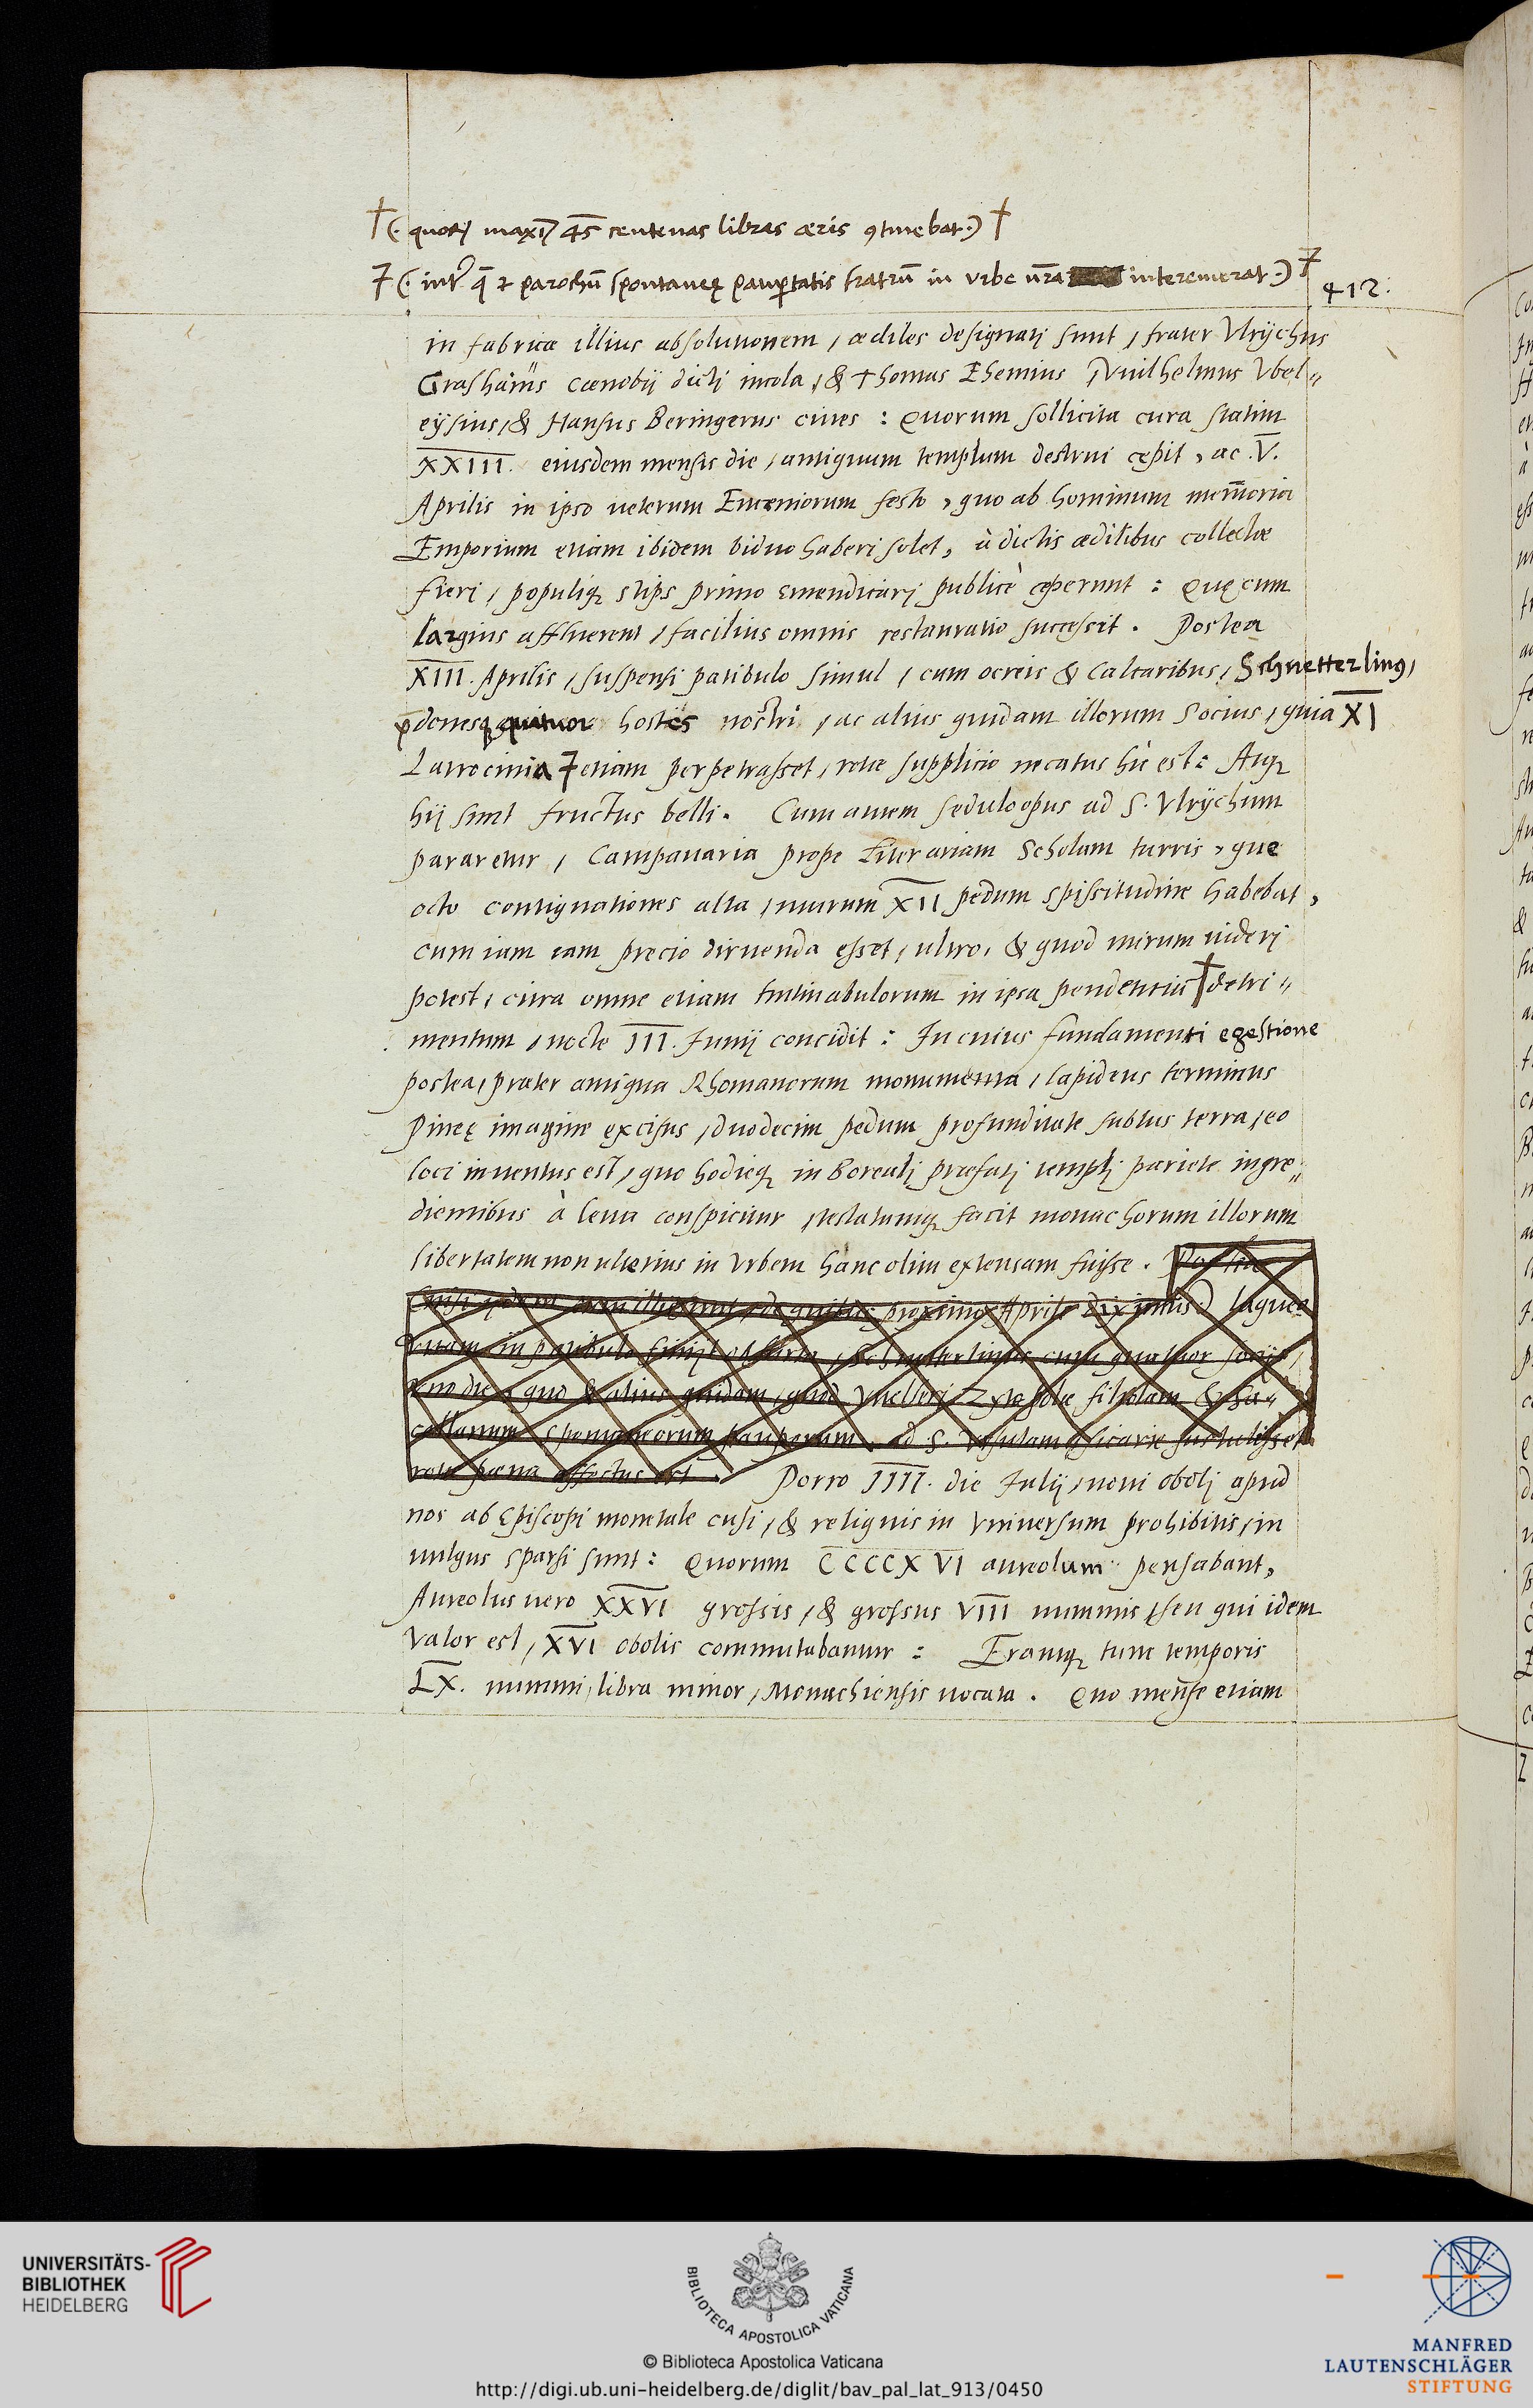 †(· quorum maximus 45 centenas libras æris continebat·)†
(· inter quas et parochum spontaneæ paupertatis fratrum in vrbe nostra interemerat·)
412·
in fabricæ illius absolutionem, ædiles designatj sunt, frater Vlrÿchus
cœnobij dicti incola, & Thomas Ehemius, Vuilhelmus Vbel〃
eÿsius, & Hansus Beringerus ciues : Quorum sollicita cura statim
XXIII. eiusdem mensis die, antiquum templum destrui cępit, ac .V.
Aprilis in ipso ueterum Encæniorum festo, quo ab hominum memoria
Emporium etiam ibidem biduo haberi solet, à dictis ædilibus collectæ
fieri, populiq; stips primo emendicarj publicè cęperunt : Quę cum
largius affluerent, facilius omnis restauratio successit. Postea
XIII. Aprilis, suspensi patibulo simul, cum ocreis & calcaribus, Schnetterlinus,
hostes nostri, ac alius quidam illorum socius, quia XI
Latrocinia etiam perpetrasset, rotæ supplicio necatus hic est : Atq;
hij sunt fructus belli. Cum autem sedulo opus ad S. Vlrÿchum
pararetur, Campanaria prope Literariam Scholam turris, que
octo contignationes alta, murum XII pedum spissitudine habebat,
cum iam eam precio diruenda esset, ultro, & quod mirum uiderj
potest, citra omne etiam tintinabulorum in ipsa pendentium † detri〃
mentum, nocte III. Junij concidit : In cuius fundamenti egestione
postea, præter antiqua Rhomanorum monumenta, lapideus terminus
Pineę imagine excisus, duodecim pedum profunditate subtus terra, eo
loci inuentus est, quo hodieq; in Borealj præfatj templj pariete ingre〃
dientibus à leua conspicitur, testatumq; facit monachorum illorum
libertatem non ulterius in Vrbem hanc olim extensam fuisse. Postea
proximo Aprile diximus) laqueo
uitam in patibulo Schnetterlinus cum quatuor socijs,
quo & alius quidam, quod filiolam & sa〃
cellanum spontaneorum pauperum, ad S. Vrsulam sicarie sustulisset
rotæ pœna affectus est. Porro IIII. die Julij, noui obolj apud
nos ab Episcopi monetale cusi, & reliquis in Vniuersum prohibitis, in
uulgus sparsi sunt : Quorum CCCCXVI aureolum pensabant,
Aureolus uero XXVI grossis, & grossus VIII nummis, seu qui idem
valor est, XVI obolis commutabantur : Erantq; tum temporis
LX. nummi, libra minor, Monachiensis uocata. Quo mense etiam
UNIVERSITÄTS-
BIBLIOTHEK
HEIDELBERG
BIBLIOTECA APOSTOLICA VATICANA
© Biblioteca Apostolica Vaticana
http://digi.ub.uni-heidelberg.de/diglit/bav_pal_lat_913/0450
MANFRED
LAUTENSCHLÄGER
STIFTUNG